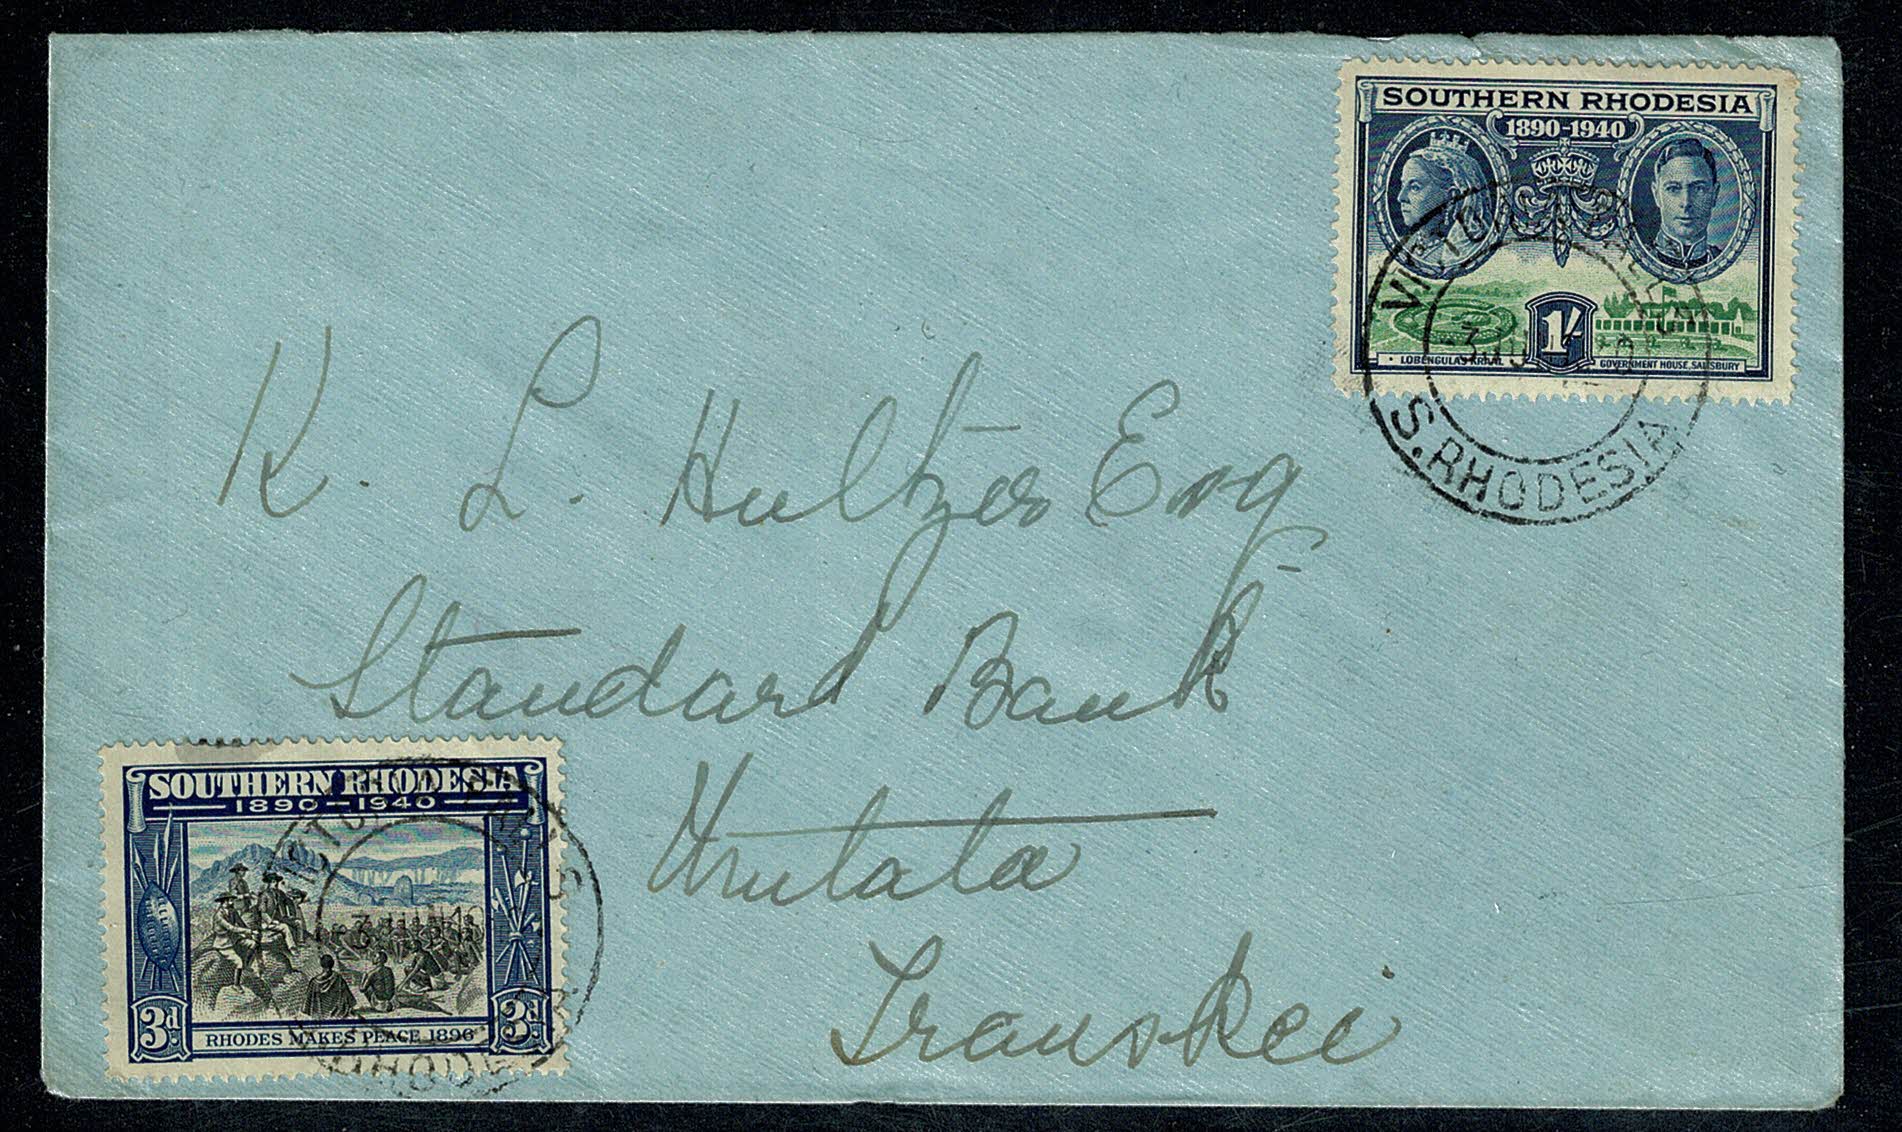 SOUTHERN RHODESIA
1890-1940
LOBENGULA'S KRAAL
1/-
GOVERNMENT HOUSE, SALISBURY
VICTORIA FALLS
S. RHODESIA
K. L. Hultzer Esq
Standard Bank
Umtata
Transkei
SOUTHERN RHODESIA
1890-1940
3d
RHODES MAKES PEACE 1896
3d
VICTORIA FALLS
RHODESIA